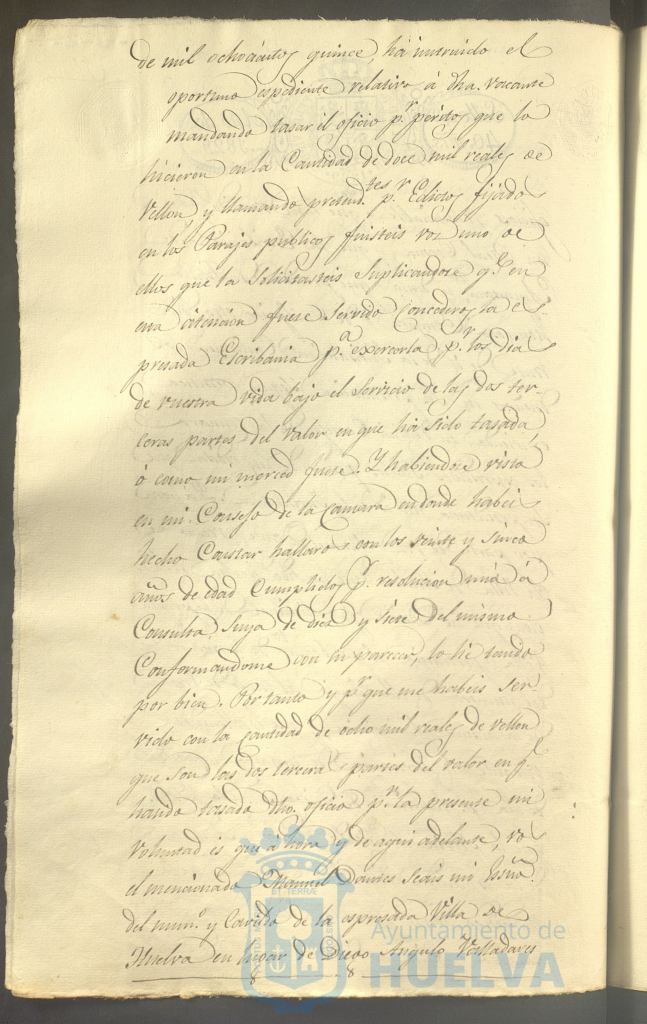 de mil ochocientos quince, há instruido el
oportuno espediente relativo á dha. vacante
mandando tasar el oficio pr. peritos que lo
hicieron en la Cantidad de doce mil reales de
Vellon, y llamando pretendtes. pr. Edictos fijados
en los Parajes publicos fuisteis vos uno de
ellos que la solicitasteis Suplicandose qe. en
esta atencion fuese servido Concederos la es-
presada Escribania pa. exercerla pr. los dias
de vuestra vida bajo el Servicio de las dos ter-
ceras partes del valor en que ha sido tasada,
ó como mi merced fuese. Y habiendose visto
en mi Consejo de la Camara en donde habeis
hecho Constar hallaros con los veinte y sinco
años de edad Cumplidos pr. resolucion mia á
Consulta Suya de dies y siete del mismo
Conformandome con su parecer, lo hé tenido
por bien. Por tanto y pr. que me habeis ser-
vido con la cantidad de ocho mil reales de vellon
que son las dos terceras partes del valor en qe.
handa tasado dho. oficio pr. la presente mi
voluntad es que ahora y de aqui adelante, vos
el mencionado Manuel Dantes seais mi Essno.
del numo. y Cavildo de la espresada Villa de
Huelva en lugar de Diego Angulo Valladares
Ayuntamiento de
HUELVA